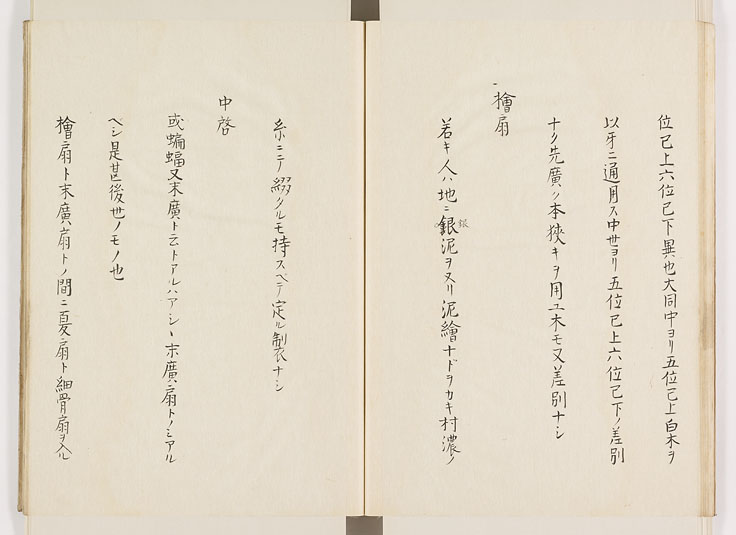 位已上六位已下異也大同中ヨリ五位已上白木ヲ
以牙ニ通用ス中世ヨリ五位已上六位已下ノ差別
ナク先廣ク本狹キヲ用ユ木モ又差別ナシ
檜扇
若キ人ハ地ニ銀泥ヲヌリ泥繪ナドヲカキ村濃ノ
銀
糸ニテ綴クルモ持スベテ定ル制衣ナシ
中啓
或蝙蝠又末廣ト云トアルハアシヽ末廣扇トノミアル
ベシ是甚後世ノモノ也
檜扇ト末廣扇トノ間ニ夏扇ト細骨扇ヲ入ル